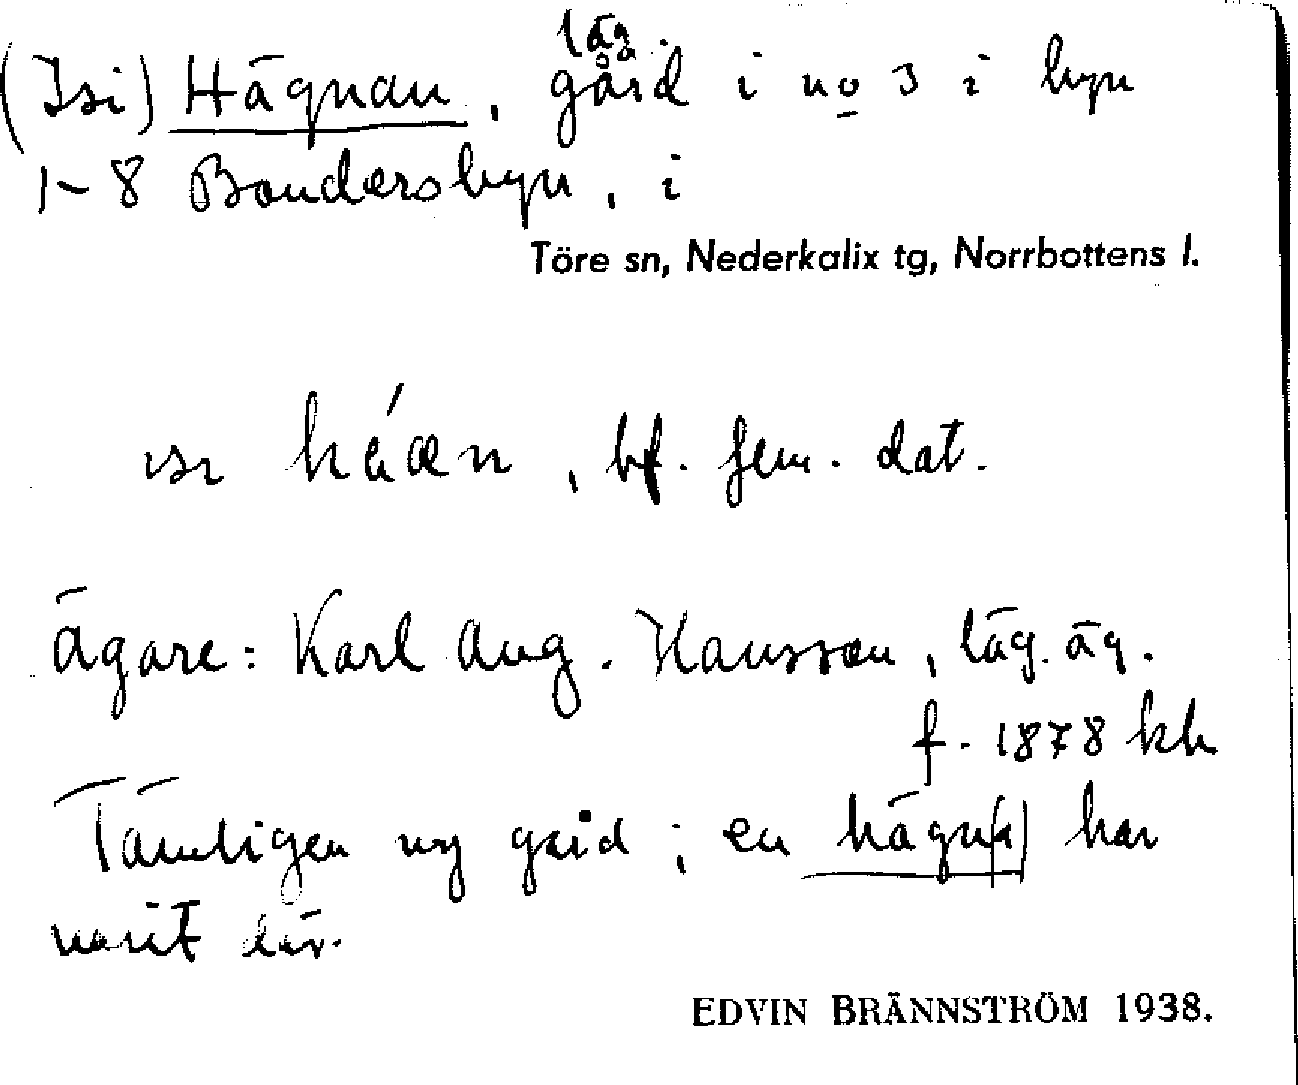 (Isi) Hägnan, läg.
gård i no 3 i byn
1–8 Bondersbyn, i
Töre sn, Nederkalix tg, Norrbottens l.
bf. fem. dat.
Ägare: Karl Aug. Hansson, läg. äg.
f. 1878
Tämligen ny gård; en hägn(a) har
varit där.
EDVIN BRÄNNSTRÖM 1938.